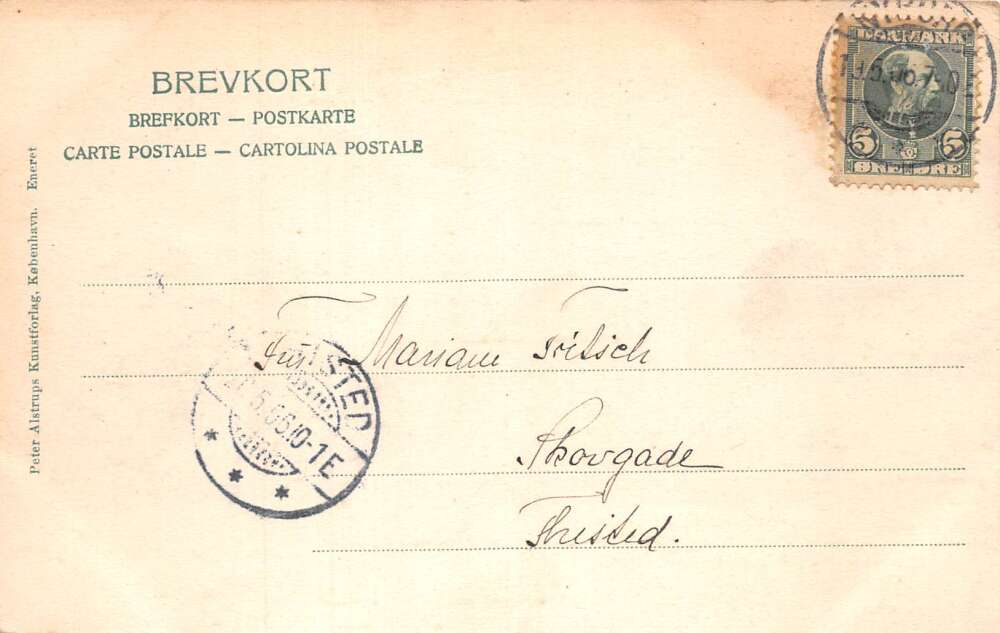 BREVKORT
BREFKORT — POSTKARTE
CARTE POSTALE — CARTOLINA POSTALE
Peter Alstrups Kunstforlag, København. Eneret
DANMARK
5 5
ØRE ØRE
STED
5.06.10-1E
Mariane Fritsch
Skovgade
Thisted.